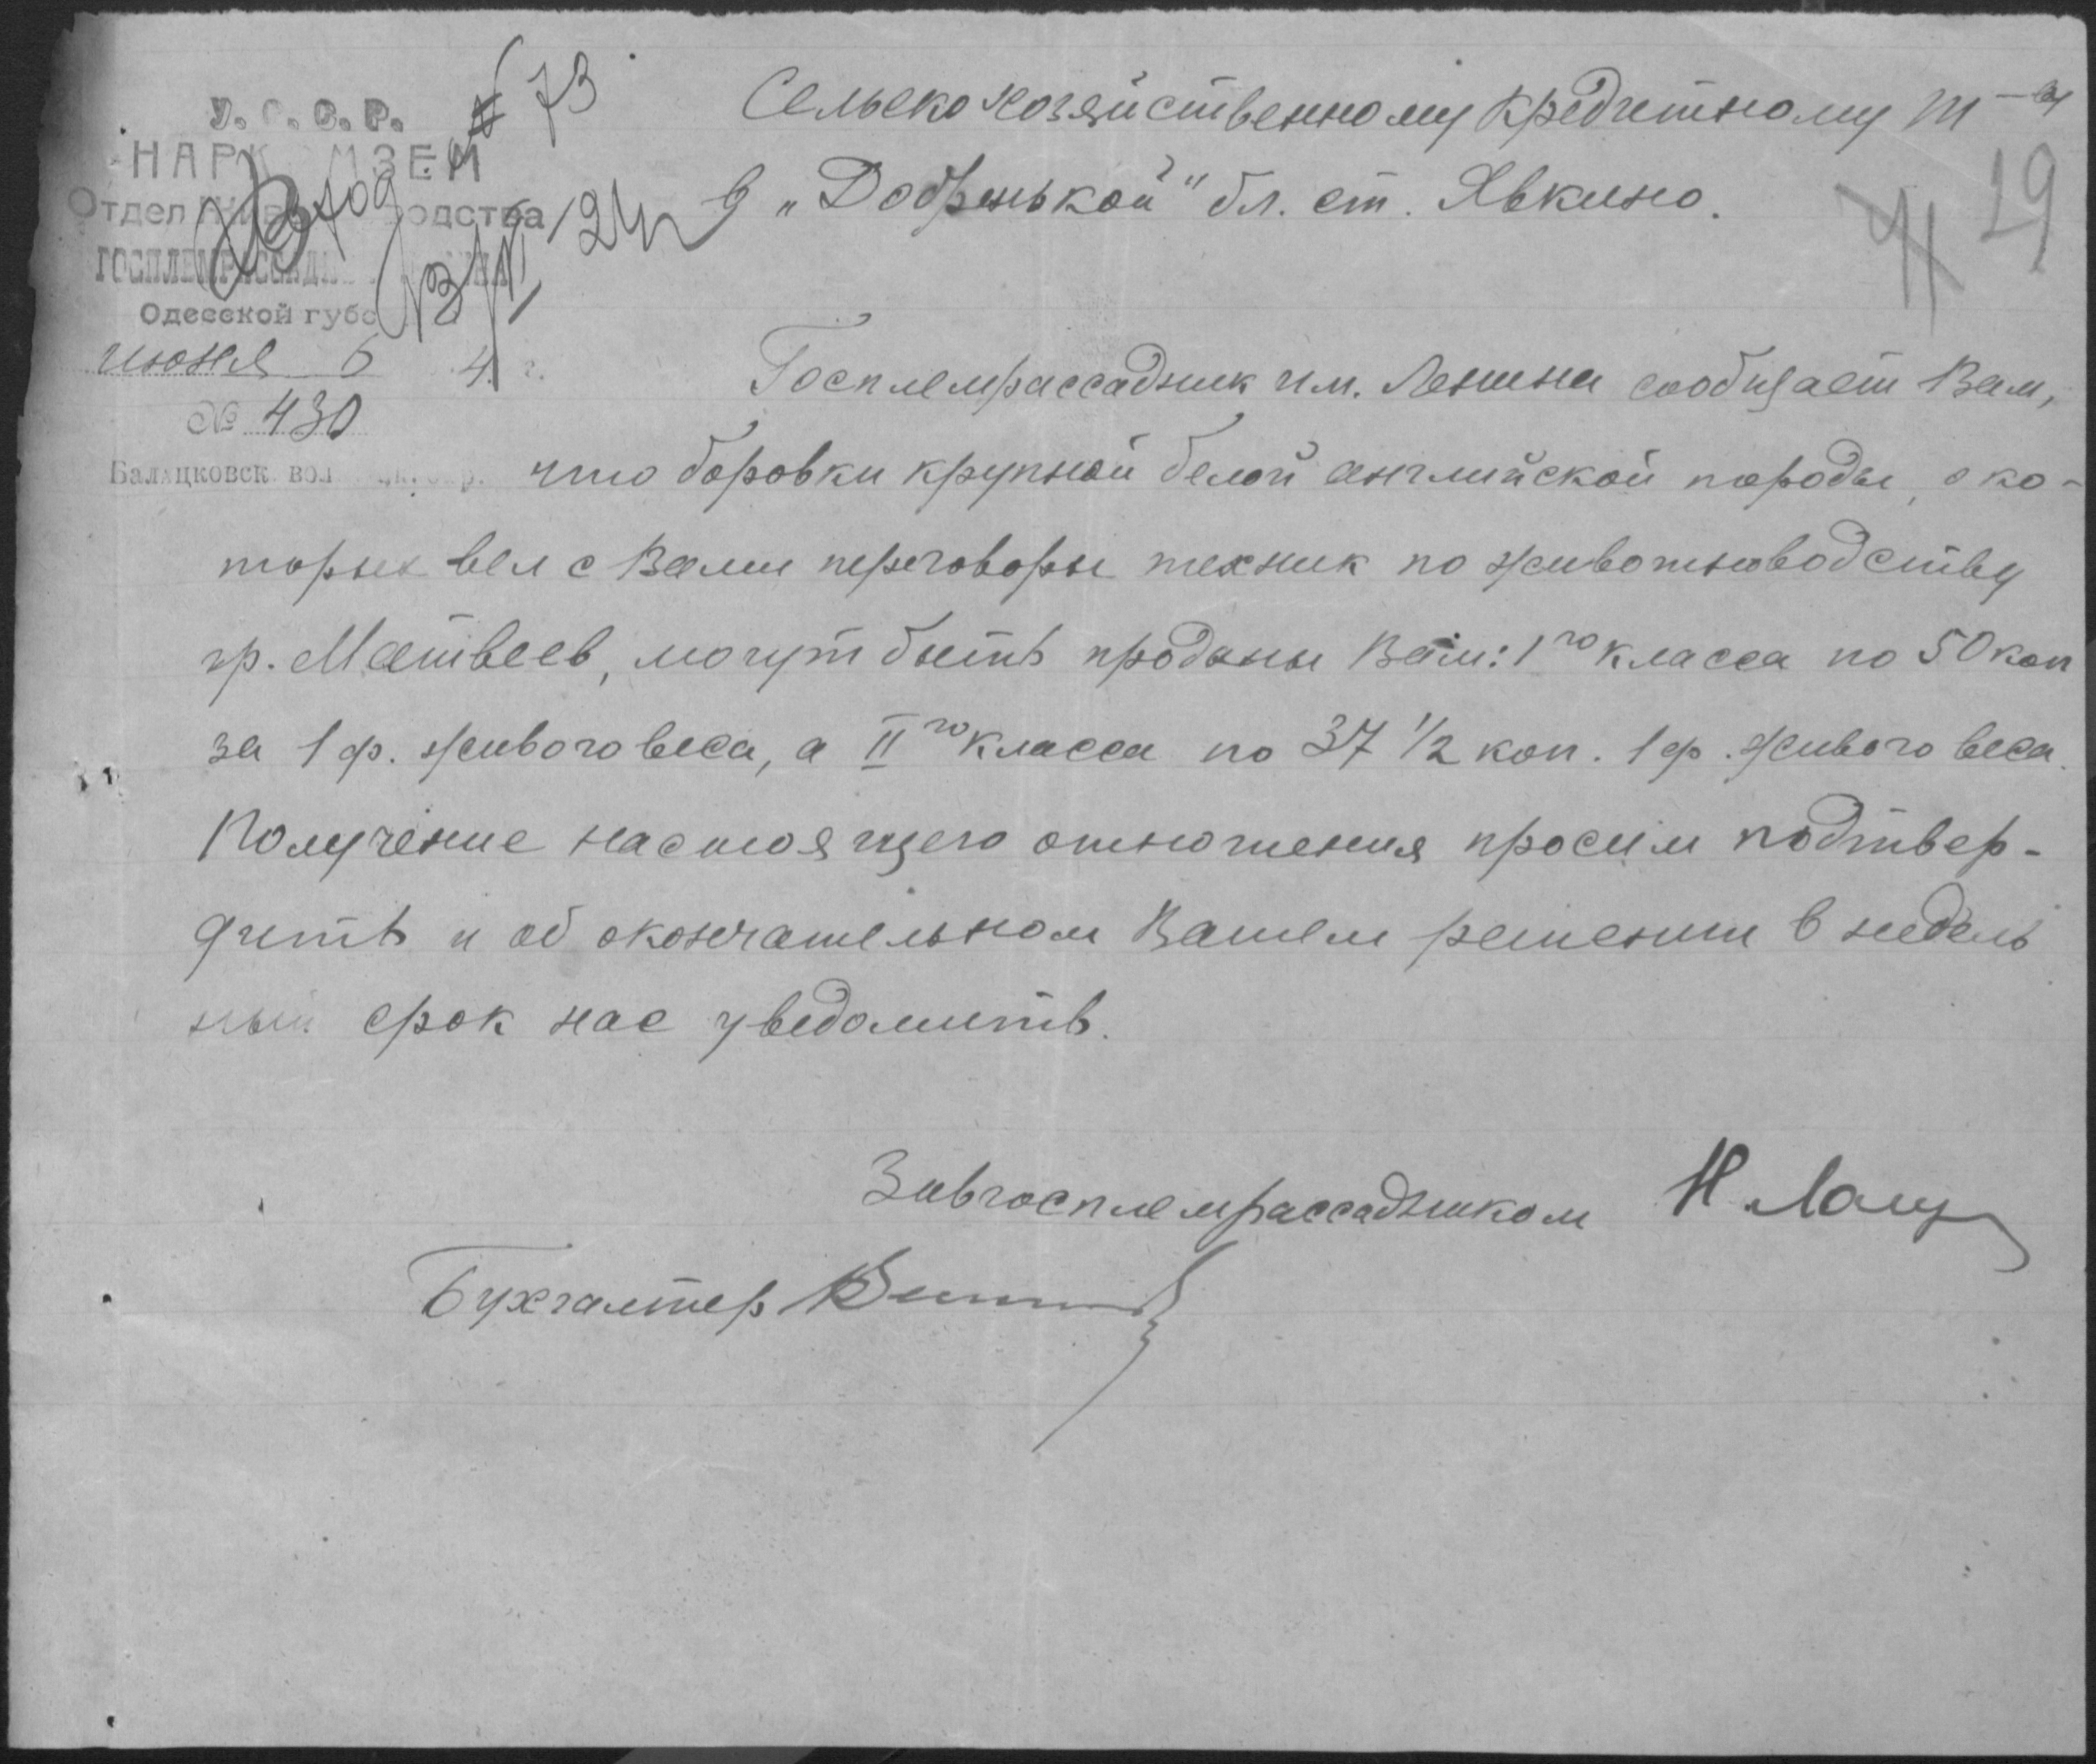 У.С.С.Р.
НАРКОМЗЕМ
Отдел Животноводства
ГОСПЛЕМРАССАДНИК
Одесской губ
июня 6 4 г.
№ 430
Балацковск. вол
Вход. № 73
13/VI 24
29
Сельскохозяйственному Кредитному т-ву
в „Добренькой" бл. ст. Явкино.
Госплемрассадник им. Ленина сообщает Вам,
что боровки крупной белой английской породы, о ко-
торых вел с Вами переговоры техник по животноводству
гр. Матвеев, могут быть проданы Вам: 1го класса по 50 коп
за 1 ф. живого веса, а IIго класса по 37 1/2 коп. 1 ф. живого веса.
Получение настоящего отношения просим подтвер-
дить и об окончательном Вашем решении в недель
ный срок нас уведомить.
Завгосплемрассадником
Бухгалтер